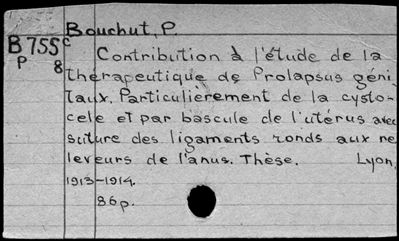 Bouchut, P.
B755c
P 8
Contribution à l'étude de la
thérapeutique de Prolapsus géni
taux. Particulièrement de la cysto-
cele et par bascule de l'utérus avec
suture des ligaments ronds aux re
leveurs de l'anus. Thèse. Lyon,
1913-1914.
86p.